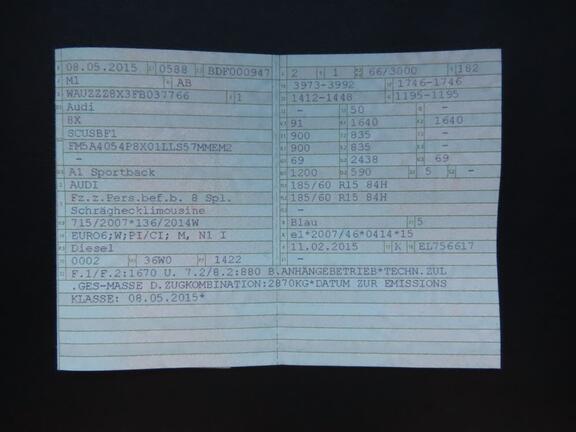 08.05.2015 0588 BDF000947
M1 AB
WAUZZZ8X3FB037766 1
Audi
8X
SCUSBF1
FM5A4054P8X01LLS57MMEM2
-
A1 Sportback
AUDI
Fz.z.Pers.bef.b. 8 Spl.
Schräghecklimousine
715/2007*136/2014W
EURO6;W;PI/CI; M, N1 I
Diesel
0002 36W0 1422
2 1 66/3000 182
3973-3992 1746-1746
1412-1448 1195-1195
- 50 -
91 1640 1640
900 835 -
900 835 -
69 2438 69
1200 590 5 -
185/60 R15 84H
185/60 R15 84H
-
Blau 5
e1*2007/46*0414*15
11.02.2015 K EL756617
-
F.1/F.2:1670 U. 7.2/8.2:880 B.ANHÄNGEBETRIEB*TECHN.ZUL
.GES-MASSE D.ZUGKOMBINATION:2870KG*DATUM ZUR EMISSIONS
KLASSE: 08.05.2015*